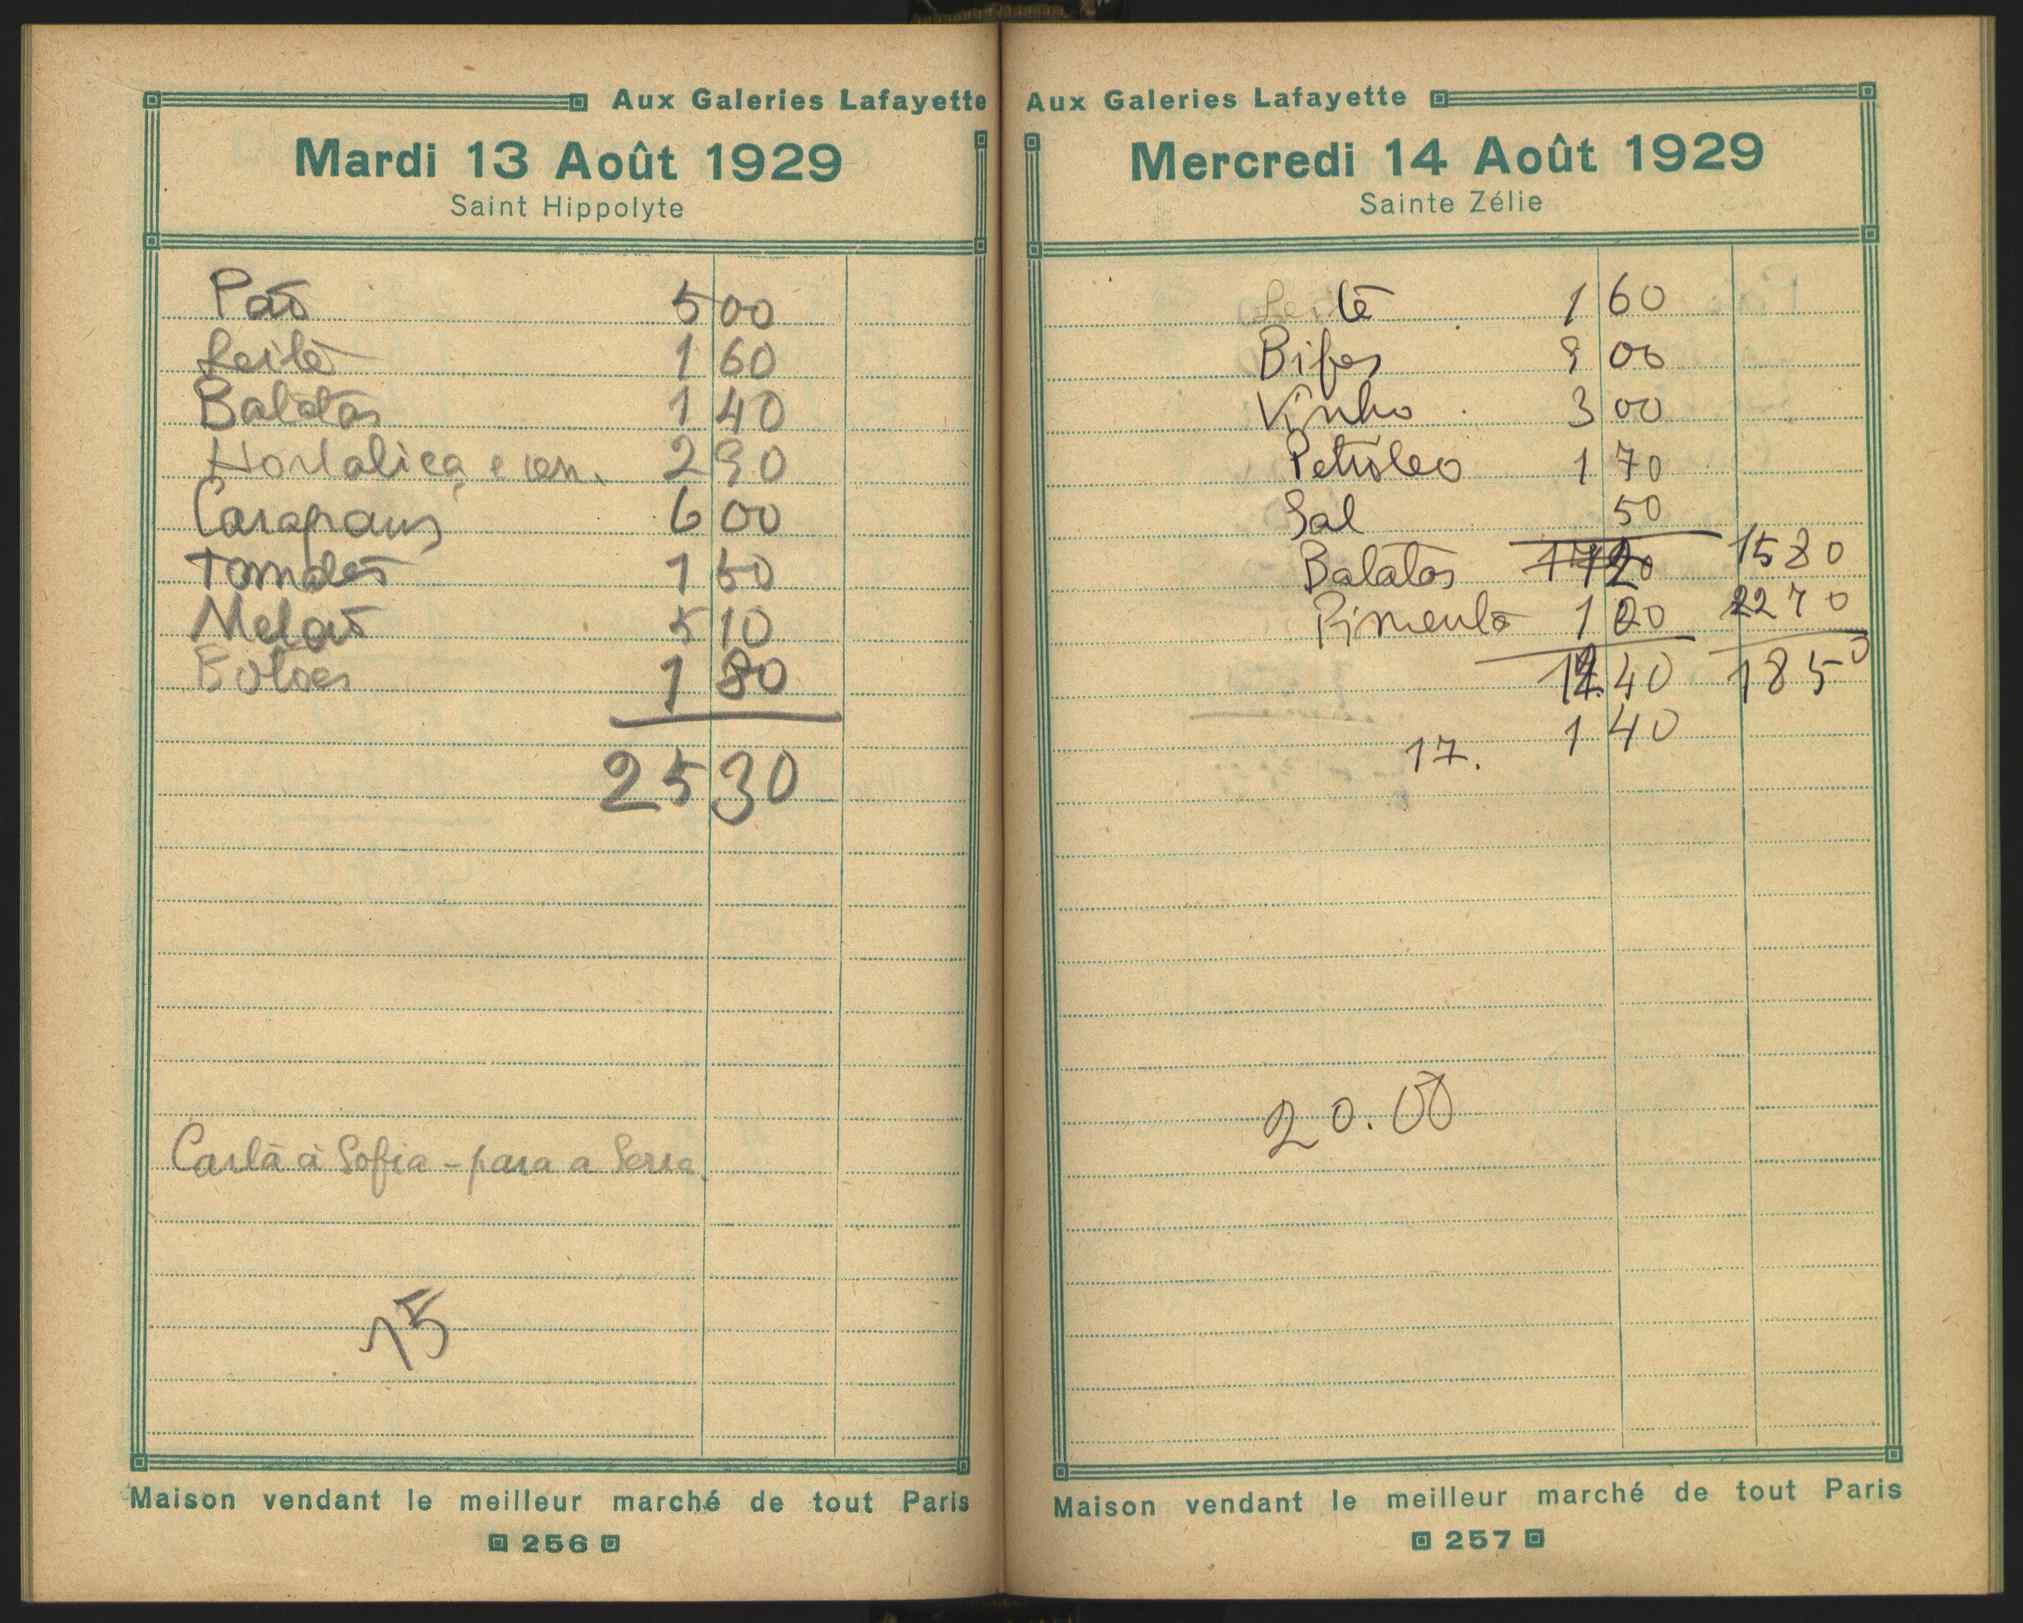 Aux Galeries Lafayette
Mardi 13 Août 1929
Saint Hippolyte
Pão 5 00
Leite 1 60
Batatas 1 40
Hortaliça e cen. 2 90
Carapaus 6 00
Tomates 1 50
Melão 5 10
Botões 1 80
25 30
Carta à Sofia - para a Serra.
15
Maison vendant le meilleur marché de tout Paris
256
Aux Galeries Lafayette
Mercredi 14 Août 1929
Sainte Zélie
Leite 1 60
Bifes 9 00
Vinho 3 00
Petroleo 1 70
Sal 50
Batatas 15 80
Pimenta 1 20 2270
40 1850
1 40
17.
20.00
Maison vendant le meilleur marché de tout Paris
257